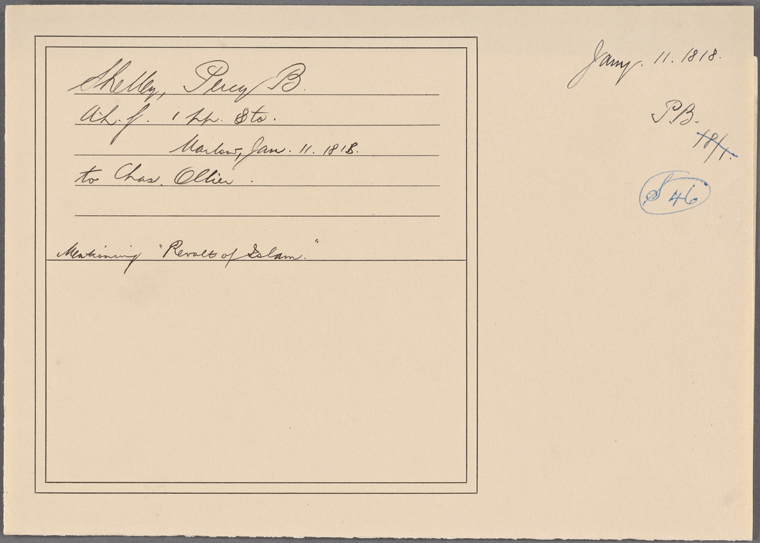 Shelley, Percy B.
A.L.f. 1 pp. 8to.
Marlow, Jan. 11. 1818.
to Chas. Ollier.
Mentioning "Revolt of Islam."
Jany. 11. 1818.
P.B.
S 46